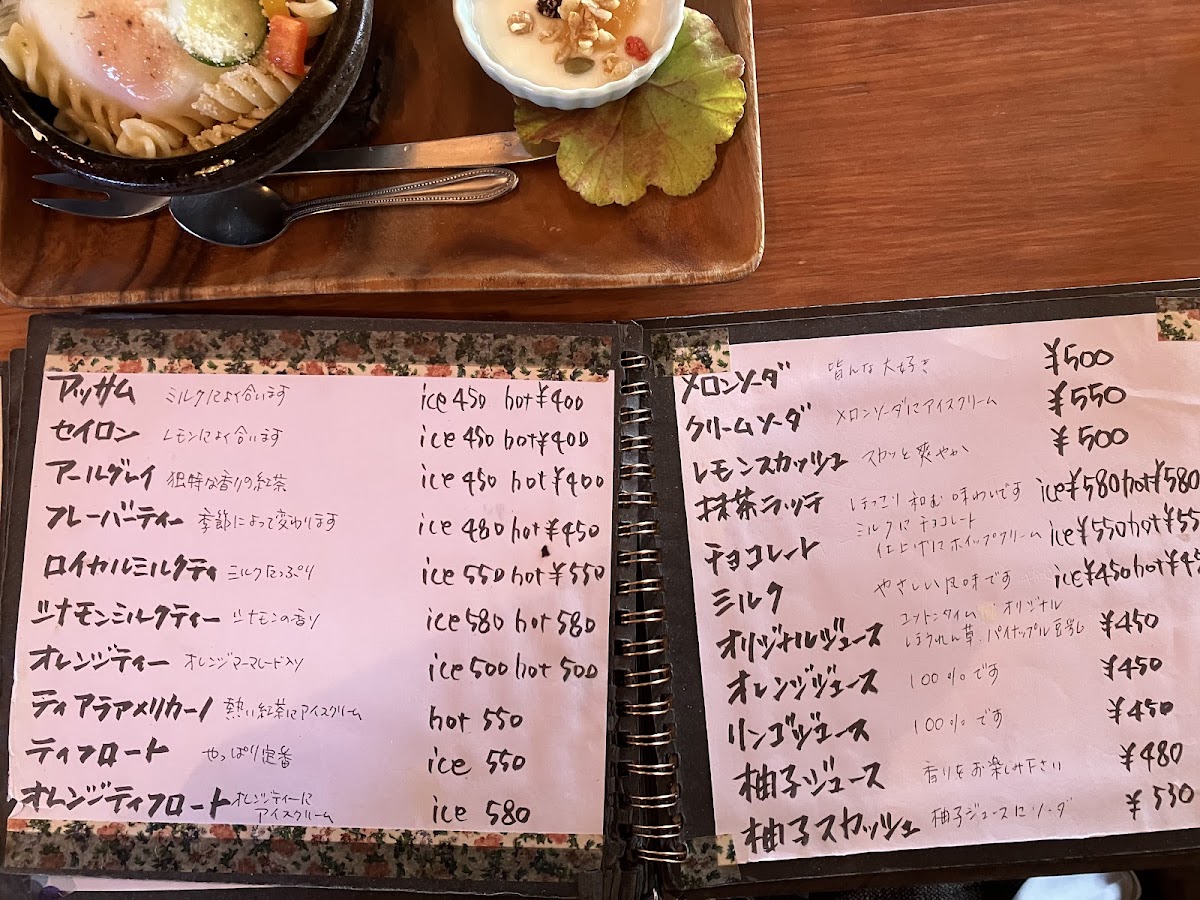 アッサム ミルクによく合います ice 450 hot ¥400
セイロン レモンによく合います ice 450 hot ¥400
アールグレイ 独特な香りの紅茶 ice 450 hot ¥400
フレーバーティー 季節によって変わります ice 480 hot ¥450
ロイヤルミルクティ ミルクたっぷり ice 550 hot ¥550
シナモンミルクティー シナモンの香り ice 580 hot 580
オレンジティー オレンジマーマレード入り ice 500 hot 500
ティアラアメリカーノ 熱い紅茶にアイスクリーム hot 550
ティフロート やっぱり定番 ice 550
オレンジティフロート オレンジティーに
アイスクリーム ice 580
メロンソーダ 皆んな大好き ¥500
クリームソーダ メロンソーダにアイスクリーム ¥550
レモンスカッシュ スカッと爽やか ¥500
抹茶ラッテ ほっこり和む味わいです ice ¥580 hot ¥580
チョコレート ミルクにチョコレート
仕上げにホイップクリーム ice ¥550 hot ¥55
ミルク やさしい風味です ice ¥450 hot ¥45
オリジナルジュース コットンタイム オリジナル
ほうれん草、パイナップル 豆乳 ¥450
オレンジジュース 100%です ¥450
リンゴジュース 100%です ¥450
柚子ジュース 香りをお楽しみ下さい ¥480
柚子スカッシュ 柚子ジュースにソーダ ¥530